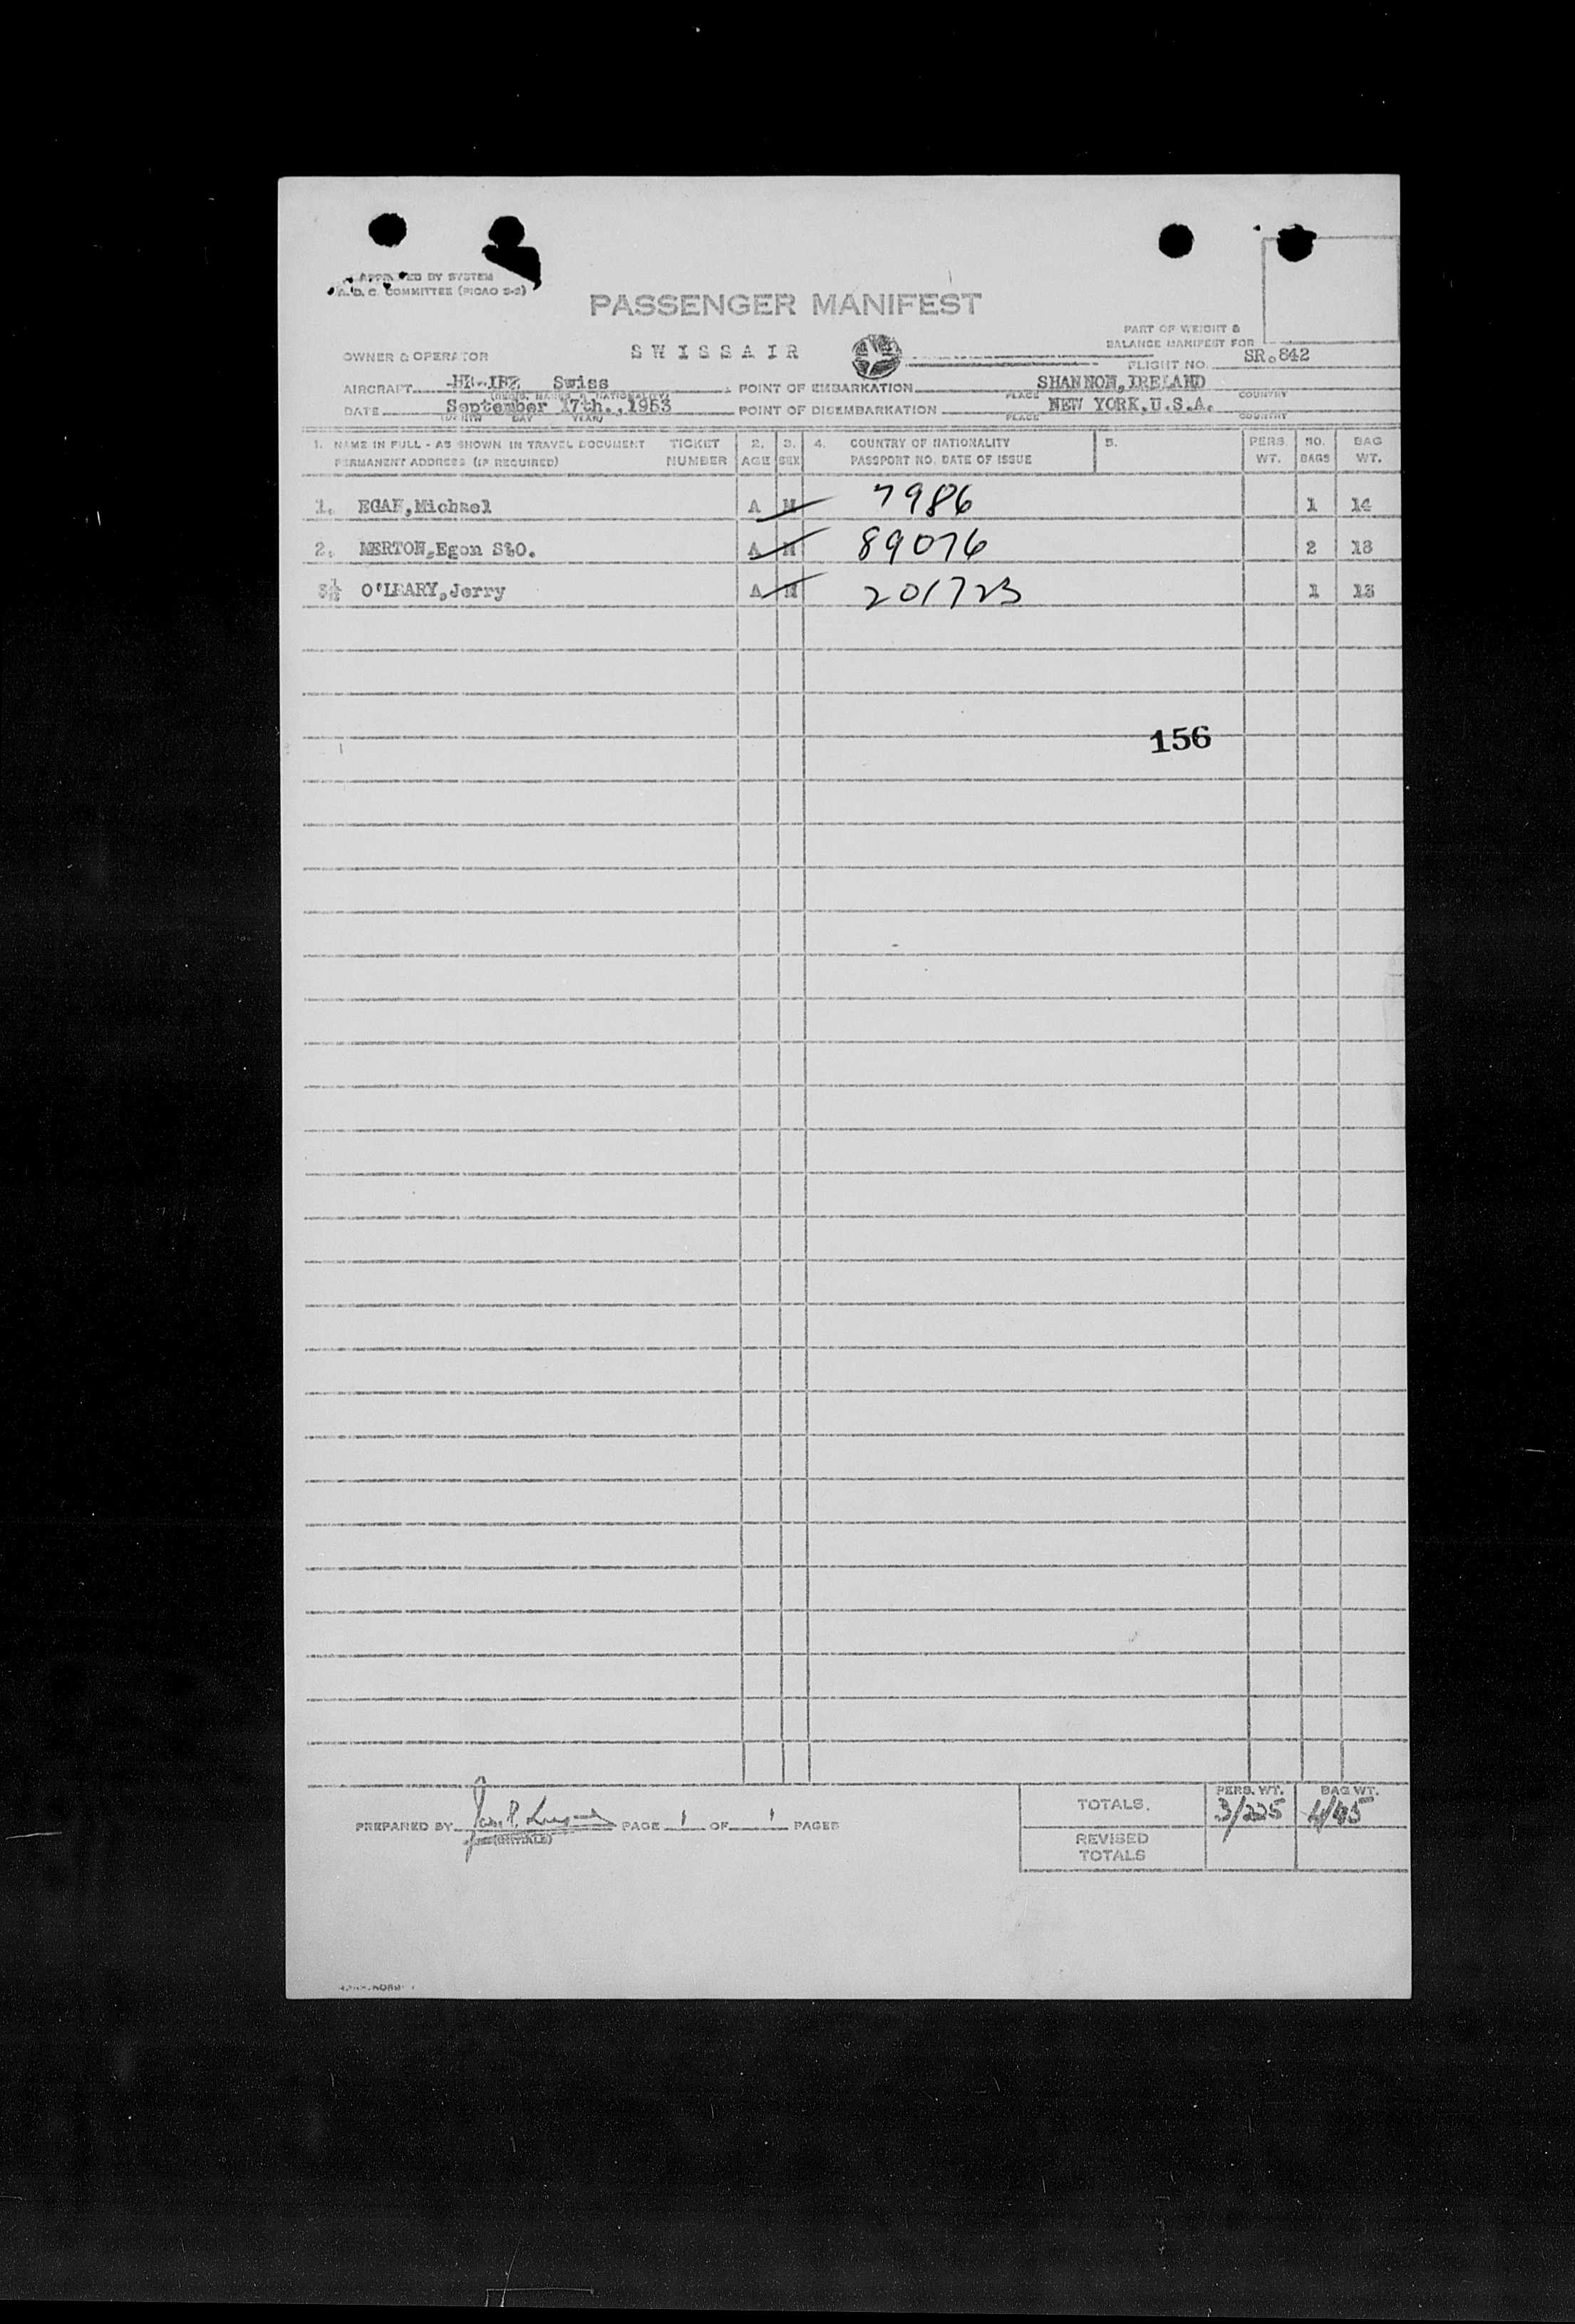 APPROVED BY SYSTEM
A. D. C. COMMITTEE (PICAO S-2)
PASSENGER MANIFEST
PART OF WEIGHT &
BALANCE MANIFEST FOR
OWNER & OPERATOR SWISSAIR FLIGHT NO. SR.842
AIRCRAFT Swiss POINT OF EMBARKATION SHANNON, IRELAND
PLACE COUNTRY
DATE September 17th., 1953 POINT OF DISEMBARKATION NEW YORK, U.S.A.
PLACE COUNTRY
1. NAME IN FULL - AS SHOWN IN TRAVEL DOCUMENT TICKET 2. 3. 4. COUNTRY OF NATIONALITY 5. PERS. NO. BAG
PERMANENT ADDRESS (IF REQUIRED) NUMBER AGE SEX PASSPORT NO. DATE OF ISSUE WT. BAGS WT.
1. EGAN, Michael A M 7986 1 14
2. MERTON, Egon St.O. A M 89076 2 18
3. O'LEARY, Jerry A M 201723 1 13
156
PERS. WT. BAG WT.
TOTALS. 3/225 4/45
PREPARED BY PAGE 1 OF 1 PAGES
(INITIALS)
REVISED
TOTALS